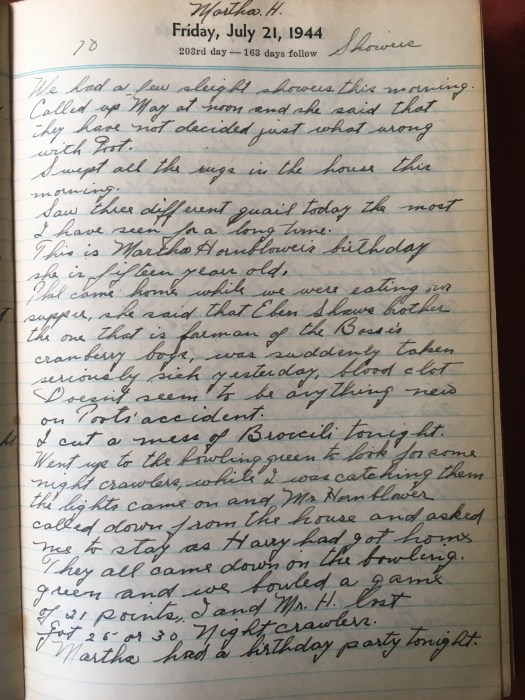 Martha. H.
Friday, July 21, 1944
70
203rd day — 163 days follow
Showers
We had a few sleight showers this morning.
Called up May at noon and she said that
they have not decided just what wrong
with Poot.
Swept all the rugs in the house this
morning.
Saw three different quail today the most
I have seen for a long time.
This is Martha Hornblowers birthday
she is fifteen years old.
came home while we were eating our
supper, she said that Eben Shaws brother
the one that is forman of the Bosses
cranberry bogs, was suddenly taken
seriously sick yesterday, blood clot
Doesn't seem to be anything new
on Poots' accident.
I cut a mess of Brocili tonight.
Went up to the bowling green to look for some
night crawlers, while I was catching them
the lights came on and Mr Hornblower
called down from the house and asked
me to stay as Harry had got home
They all came down on the bowling.
green and we bowled a game
of 21 points, I and Mr. H. lost
Got 25 or 30 Night crawlers.
Martha had a birthday party tonight.